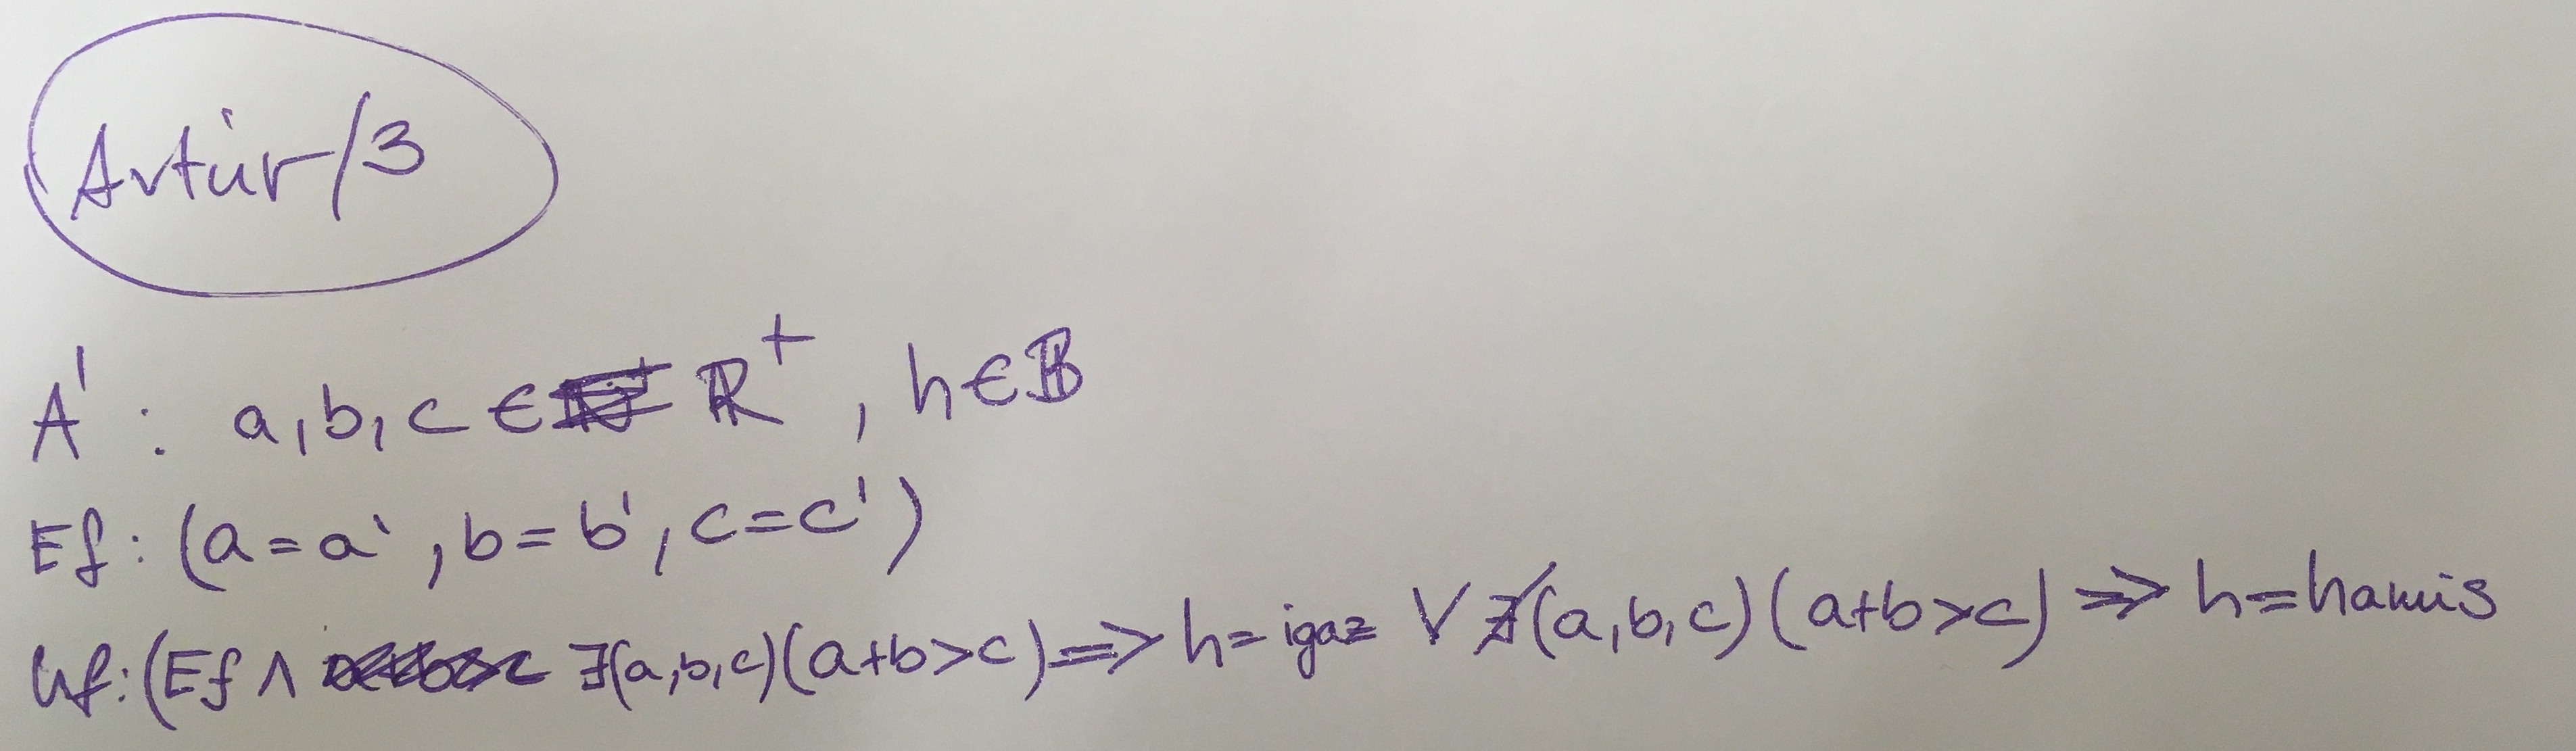 Artúr/3
A': a,b,c ∈ ℝ⁺, h∈𝔹
Ef: (a=a', b=b', c=c')
Uf: (Ef ∧ ∃(a,b,c)(a+b>c) ⟹ h=igaz ∨ ∄(a,b,c)(a+b>c) ⟹ h=hamis